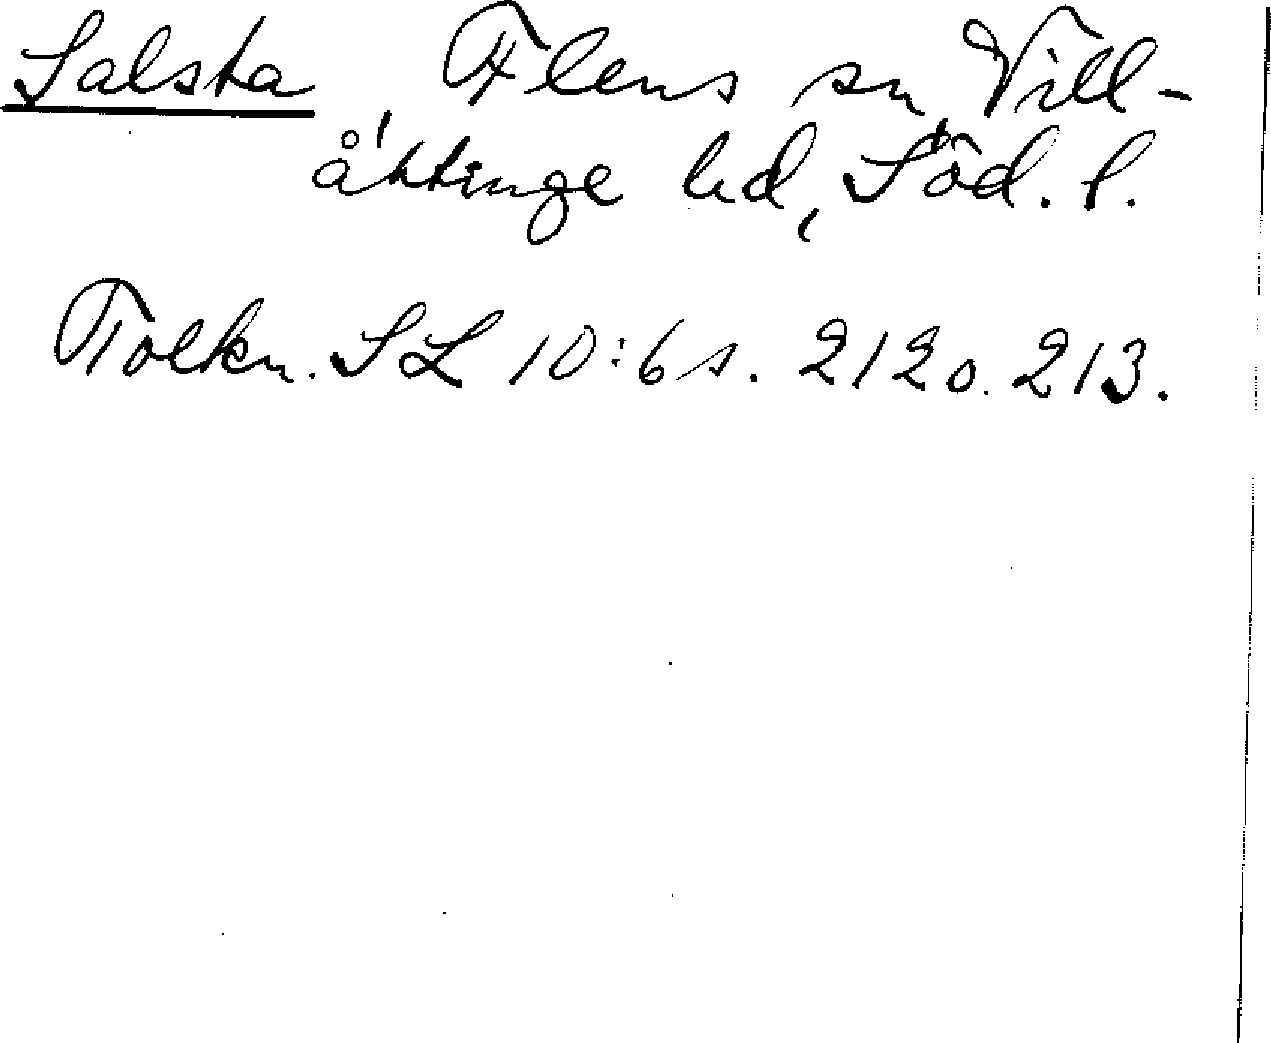 Salsta, Flens sn, Vill-
åttinge hd, Söd. l.
Tolkn. SL 10:6 s. 212 o. 213.